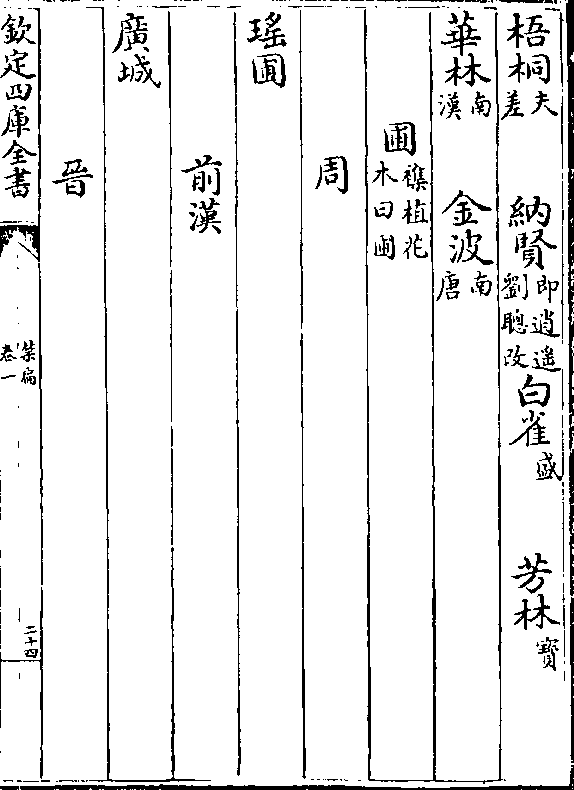 梧桐夫差 納賢即逍遥劉聰改 白雀盛 芳林寶
華林南漢 金波南唐
圃襍植花木曰圃
周
瑤圃
前漢
廣城
晉
欽定四庫全書 禁扁卷一 二十四